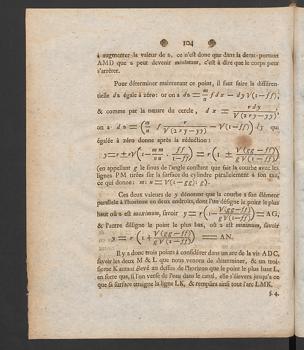 104
à augmenter la valeur de u, ce n'est donc que dans la demi-portant
AMD que u peut devenir maximum, c'est à dire que le corps peut
s'arrêter.
Pour déterminer maintenant ce point, il faut faire la différen-
tielle du égale à zéro: or on a du = m/n f dx − dy √(1−ff);
& comme par la nature du cercle, dx = r dy / √(2ry−yy),
on a du = (m/n f r/√(2ry−yy) − √(1−ff)) dy qui
égalée à zéro donne après la réduction:
(en appellant g le sinus de l'angle constant que fait la courbe avec les
lignes PM tirées sur la surface du cylindre parallelement à son axe,
ce qui donne: m: n = √(1−gg): g).
Ces deux valeurs de y dénotent que la courbe a son élément
parallele à l'horison en deux endroits, dont l'un désigne le point le plus
haut où u est maximum, savoir y = r(1 − √(gg−ff)/g√(1−ff)) = AG,
& l'autre désigne le point le plus bas, où u est minimum, savoir
y = r(1 + √(gg−ff)/g√(1−ff)) = AN.
Il y a donc trois points à considérer dans un arc de la vis ADC,
savoir les deux M & L que nous venons de déterminer, & un troi-
sieme K autant élevé au dessus de l'horison que le point le plus haut L,
en sorte que, si l'on verse de l'eau dans le canal, elle s'élevera jusqu'à ce
que sa surface atteigne la ligne LK, & remplira ainsi tout l'arc LMK.
§. 4.